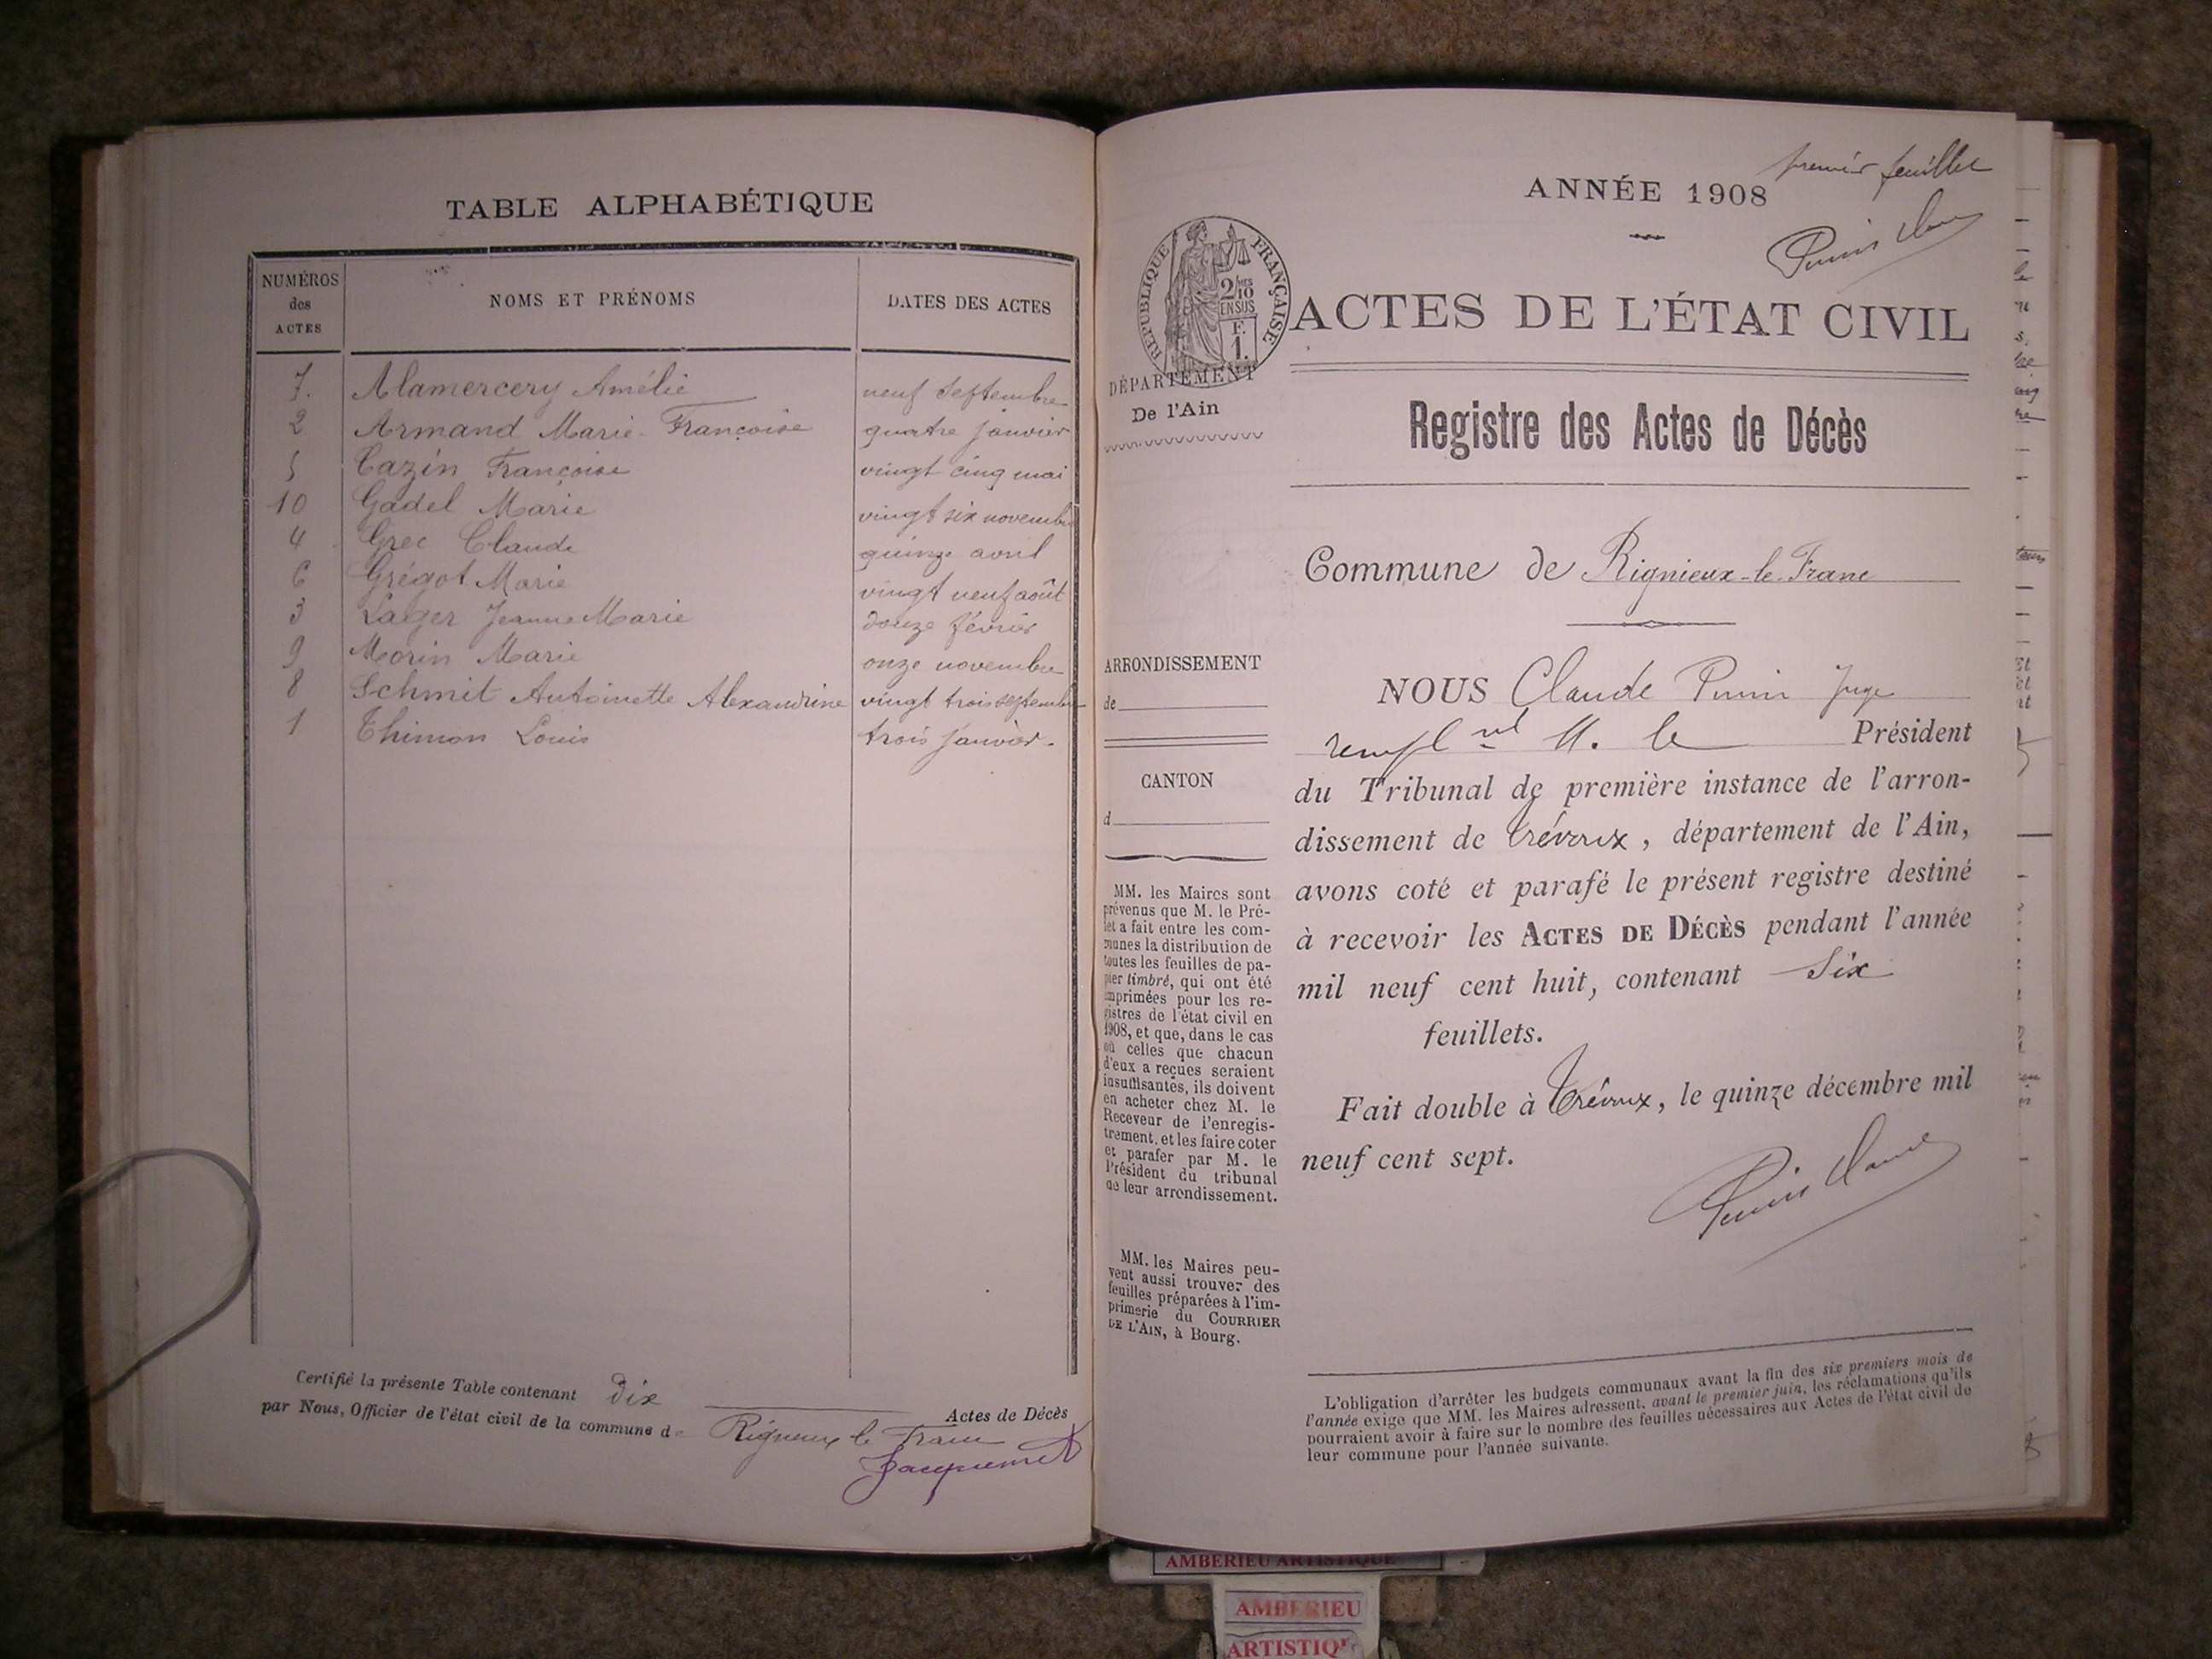 TABLE ALPHABÉTIQUE
NUMÉROS
des
ACTES
NOMS ET PRÉNOMS
DATES DES ACTES
7. Alamercery Amélie neuf Septembre
2 Armand Marie-Françoise quatre janvier
5 Cazin Françoise vingt cinq mai
10 Gadel Marie vingt six novembre
4 Grec Claude quinze avril
6 Grégot Marie vingt neuf août
3 Lager Jeanne Marie douze février
9 Morin Marie onze novembre
8 Schmit Antoinette Alexandrine vingt trois septembre
1 Thimon Louis trois janvier.
Certifié la présente Table contenant Dix Actes de Décès
par Nous, Officier de l'état civil de la commune de Rignieux le Franc
Jacquemet
premier feuillet
ANNÉE 1908
RÉPUBLIQUE FRANÇAISE
2/10
EN SUS
F.
1.
ACTES DE L'ÉTAT CIVIL
DÉPARTEMENT
De l'Ain
Registre des Actes de Décès
Commune de Rignieux-le-Franc
ARRONDISSEMENT
de
CANTON
d
MM. les Maires sont
prévenus que M. le Pré-
fet a fait entre les com-
munes la distribution de
toutes les feuilles de pa-
pier timbré, qui ont été
imprimées pour les re-
gistres de l'état civil en
1908, et que, dans le cas
où celles que chacun
d'eux a reçues seraient
insuffisantes, ils doivent
en acheter chez M. le
Receveur de l'enregis-
trement, et les faire coter
et parafer par M. le
Président du tribunal
de leur arrondissement.
MM. les Maires peu-
vent aussi trouver des
feuilles préparées à l'im-
primerie du COURRIER
DE L'AIN, à Bourg.
NOUS Claude Juge
M. le Président
du Tribunal de première instance de l'arron-
dissement de Trévoux, département de l'Ain,
avons coté et parafé le présent registre destiné
à recevoir les ACTES DE DÉCÈS pendant l'année
mil neuf cent huit, contenant Six
feuillets.
Fait double à Trévoux, le quinze décembre mil
neuf cent sept.
L'obligation d'arrêter les budgets communaux avant la fin des six premiers mois de
l'année exige que MM. les Maires adressent, avant le premier juin, les réclamations qu'ils
pourraient avoir à faire sur le nombre des feuilles nécessaires aux Actes de l'état civil de
leur commune pour l'année suivante.
AMBERIEU ARTISTIQUE
AMBERIEU
ARTISTIQU